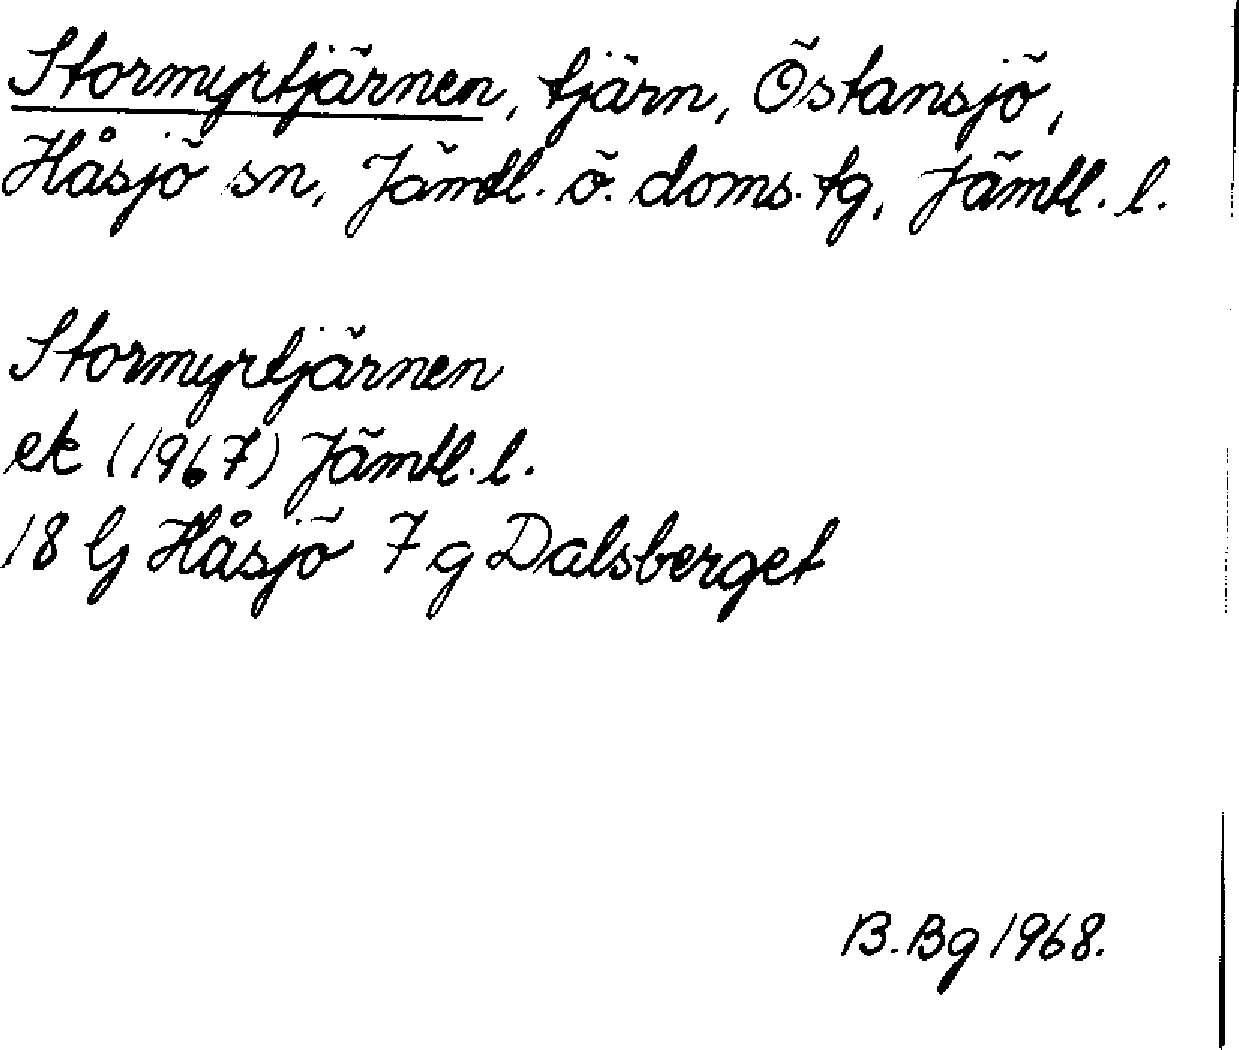 Stormyrtjärnen, tjärn, Östansjö,
Håsjö sn, Jämtl. ö. doms. tg, Jämtl. l.
Stormyrtjärnen
ek (1967) Jämtl. l.
18 G Håsjö 7 g Dalsberget
B. Bg 1968.